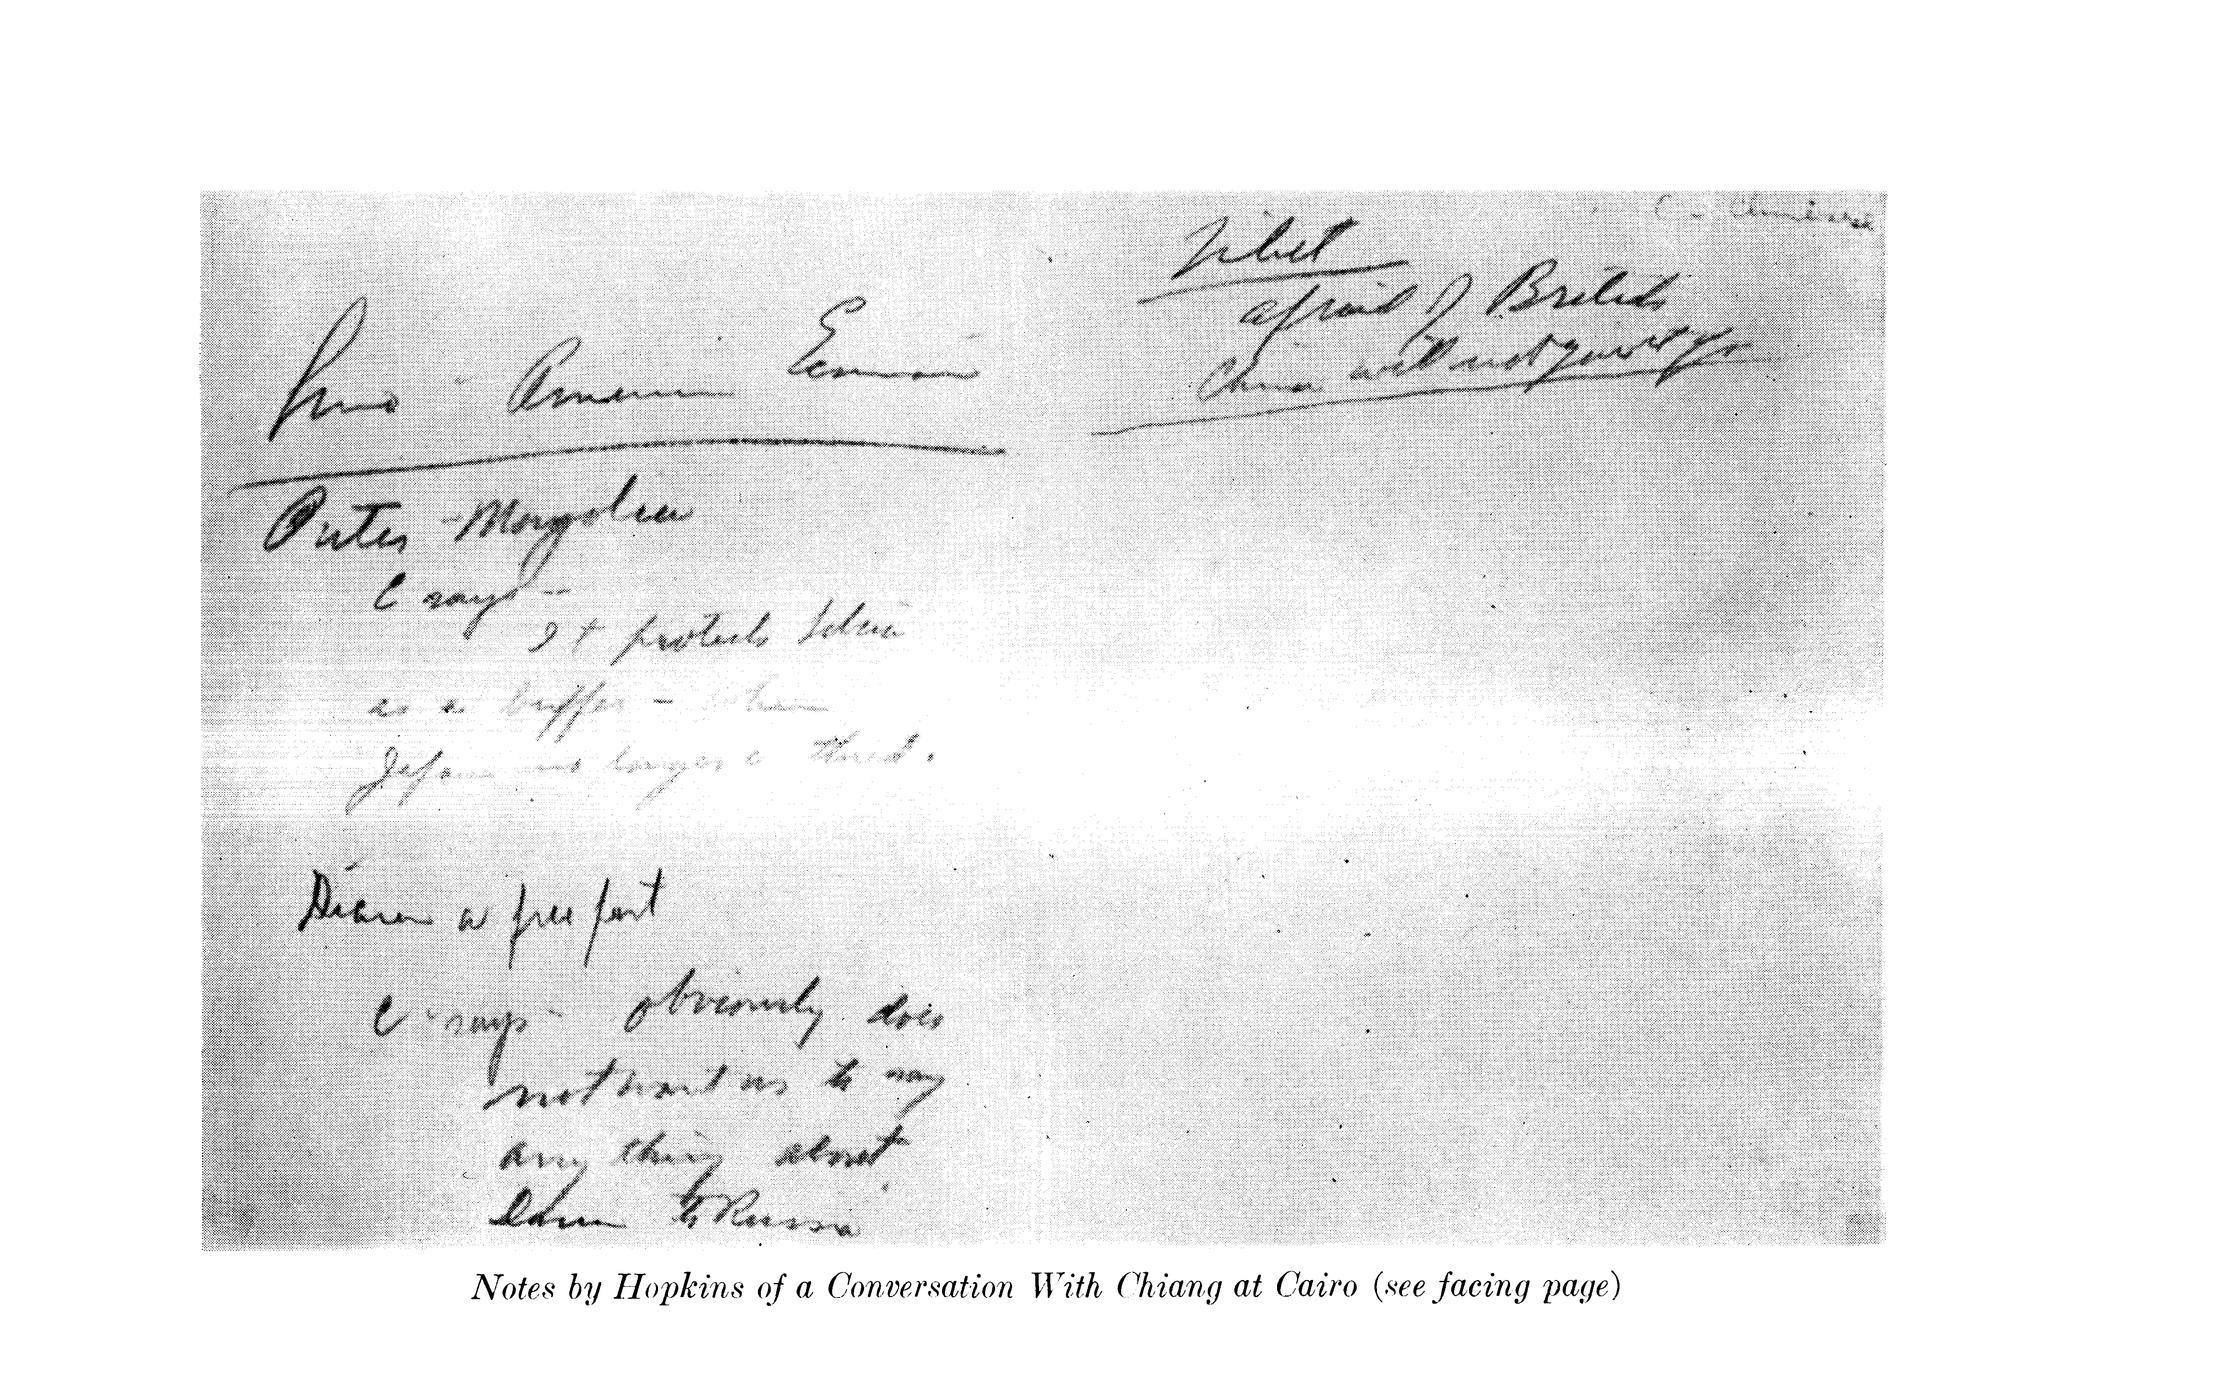 Sino - American
Outer - Mongolia
C says --
It protects Siberia
as a buffer - when
Japan no longer a threat.
Dairen a free port
C - says - obviously does
not want us to say
any thing about
to Russia
Tibet
afraid of British
China will not
Notes by Hopkins of a Conversation With Chiang at Cairo (see facing page)